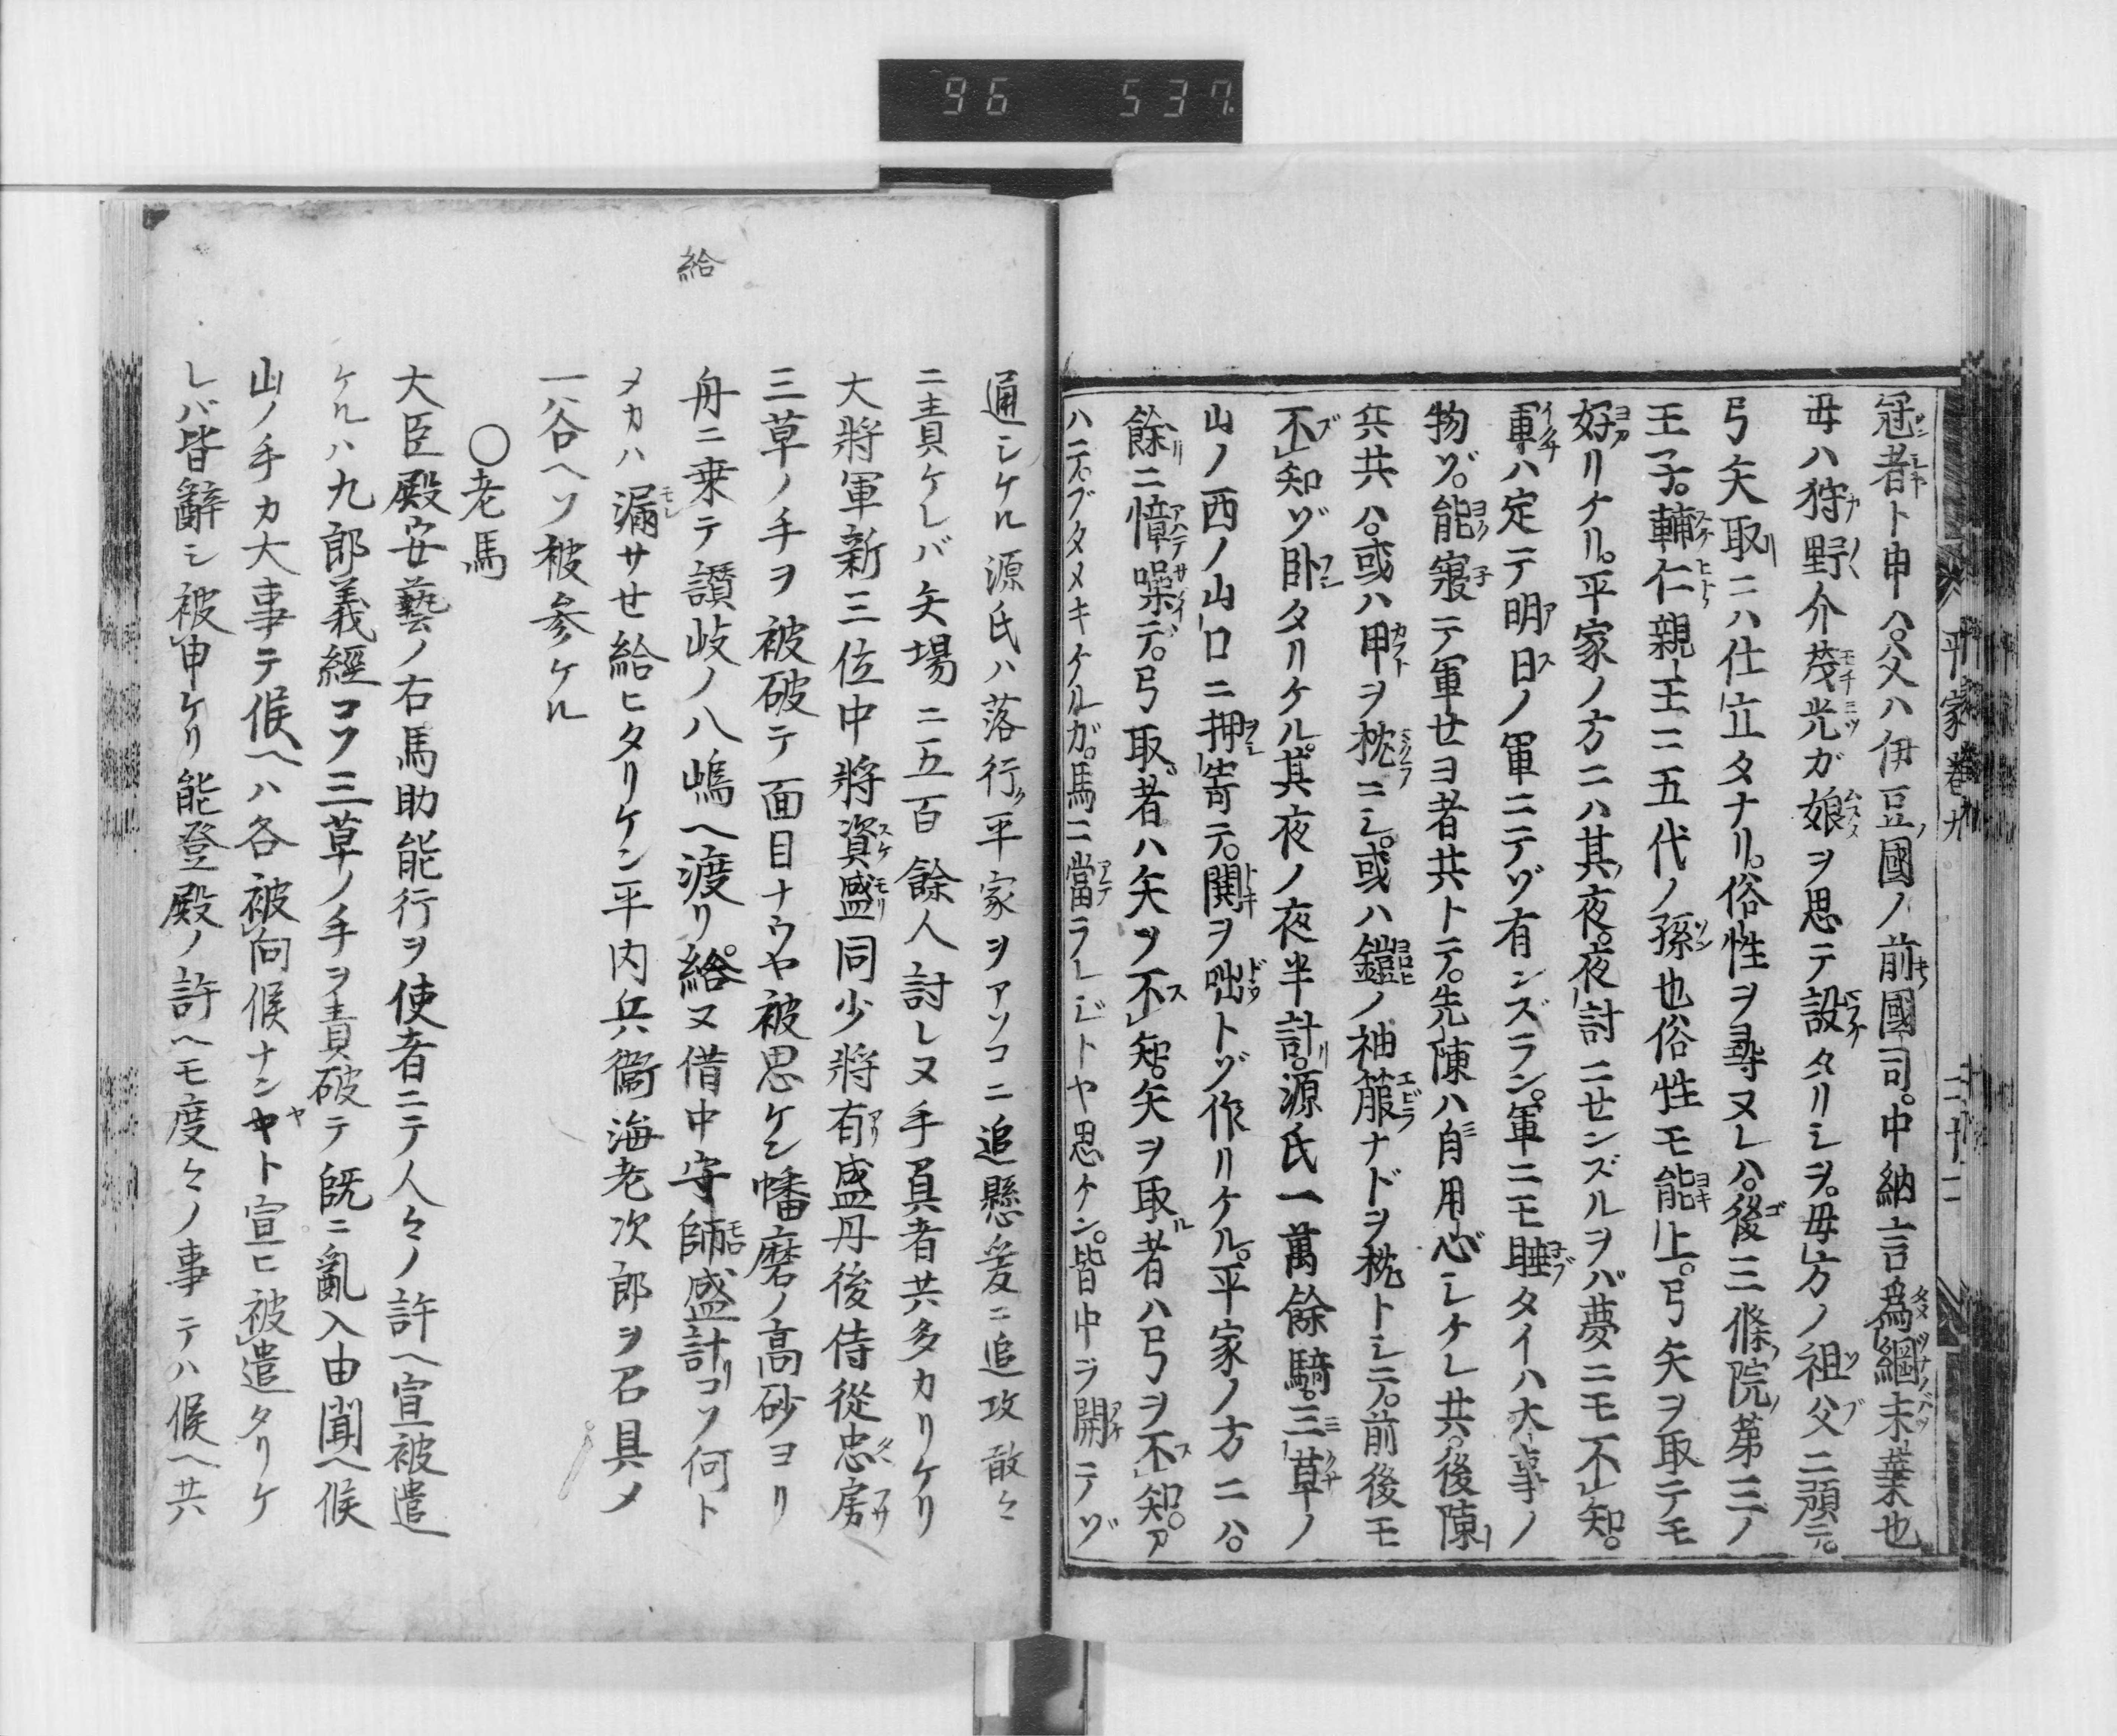 96 537
平家巻九 二十二
冠者ト申ハ。父ハ伊豆國ノ前國司。中納言爲綱末葉也
母ハ狩野介茂光ガ娘ヲ思テ設タリシヲ。母方ノ祖父ニ預テ。
弓矢取ニハ仕立タナリ。俗性ヲ尋ヌレハ。後三條院第三ノ
王子。輔仁親王ニ五代ノ孫也俗性モ能上。弓矢ヲ取テモ
好リケリ。平家ノ方ニハ其夜。夜討ニセンズルヲバ夢ニモ不知。
軍ハ定テ明日ノ軍ニテゾ有ンズラン。軍ニモ睡タイハ大事ノ
物ゾ。能寢テ軍セヨ者共トテ。先陳ハ自用心シケレ共。後陳
兵共ハ。或ハ甲ヲ枕ニシ。或ハ鎧ノ袖箙ナドヲ枕トシテ。前後モ
不知ゾ卧タリケル。其夜ノ夜半計。源氏一萬餘騎。三草ノ
山ノ西ノ山口ニ押寄テ。鬨ヲ咄トゾ作リケル。平家ノ方ニハ。
餘ニ慞噪デ。弓取者ハ矢ヲ不知。矢ヲ取者ハ弓ヲ不知。ア
ハテ。ブタメキケルガ。馬ニ當ラレジトヤ思ケン。皆中ヲ開テゾ
通シケル源氏ハ落行平家ヲアソコニ追懸爰ニ追攻散々
ニ責ケレバ矢場ニ五百餘人討レヌ手負者共多カリケリ
大將軍新三位中將資盛同少將有盛丹後侍從忠房
三草ノ手ヲ被破テ面目ナウヤ被思ケン幡磨ノ高砂ヨリ
舟ニ乗テ讃岐ノ八嶋ヘ渡リ給ヌ備中守師盛計リコソ何ト
給
メカハ漏サせ給ヒタリケン平内兵衞海老次郎ヲ召具メ
一谷ヘソ被参ケル
〇老馬
大臣殿安藝ノ右馬助能行ヲ使者ニテ人々ノ許ヘ宣被遣
ケルハ九郎義經コソ三草ノ手ヲ責破テ既ニ亂入由聞ヘ候
山ノ手カ大事テ候ヘハ各被向候ナンヤト宣ヒ被遣タリケ
レバ皆辭シ被申ケリ能登殿ノ許ヘモ度々ノ事テハ候ヘ共